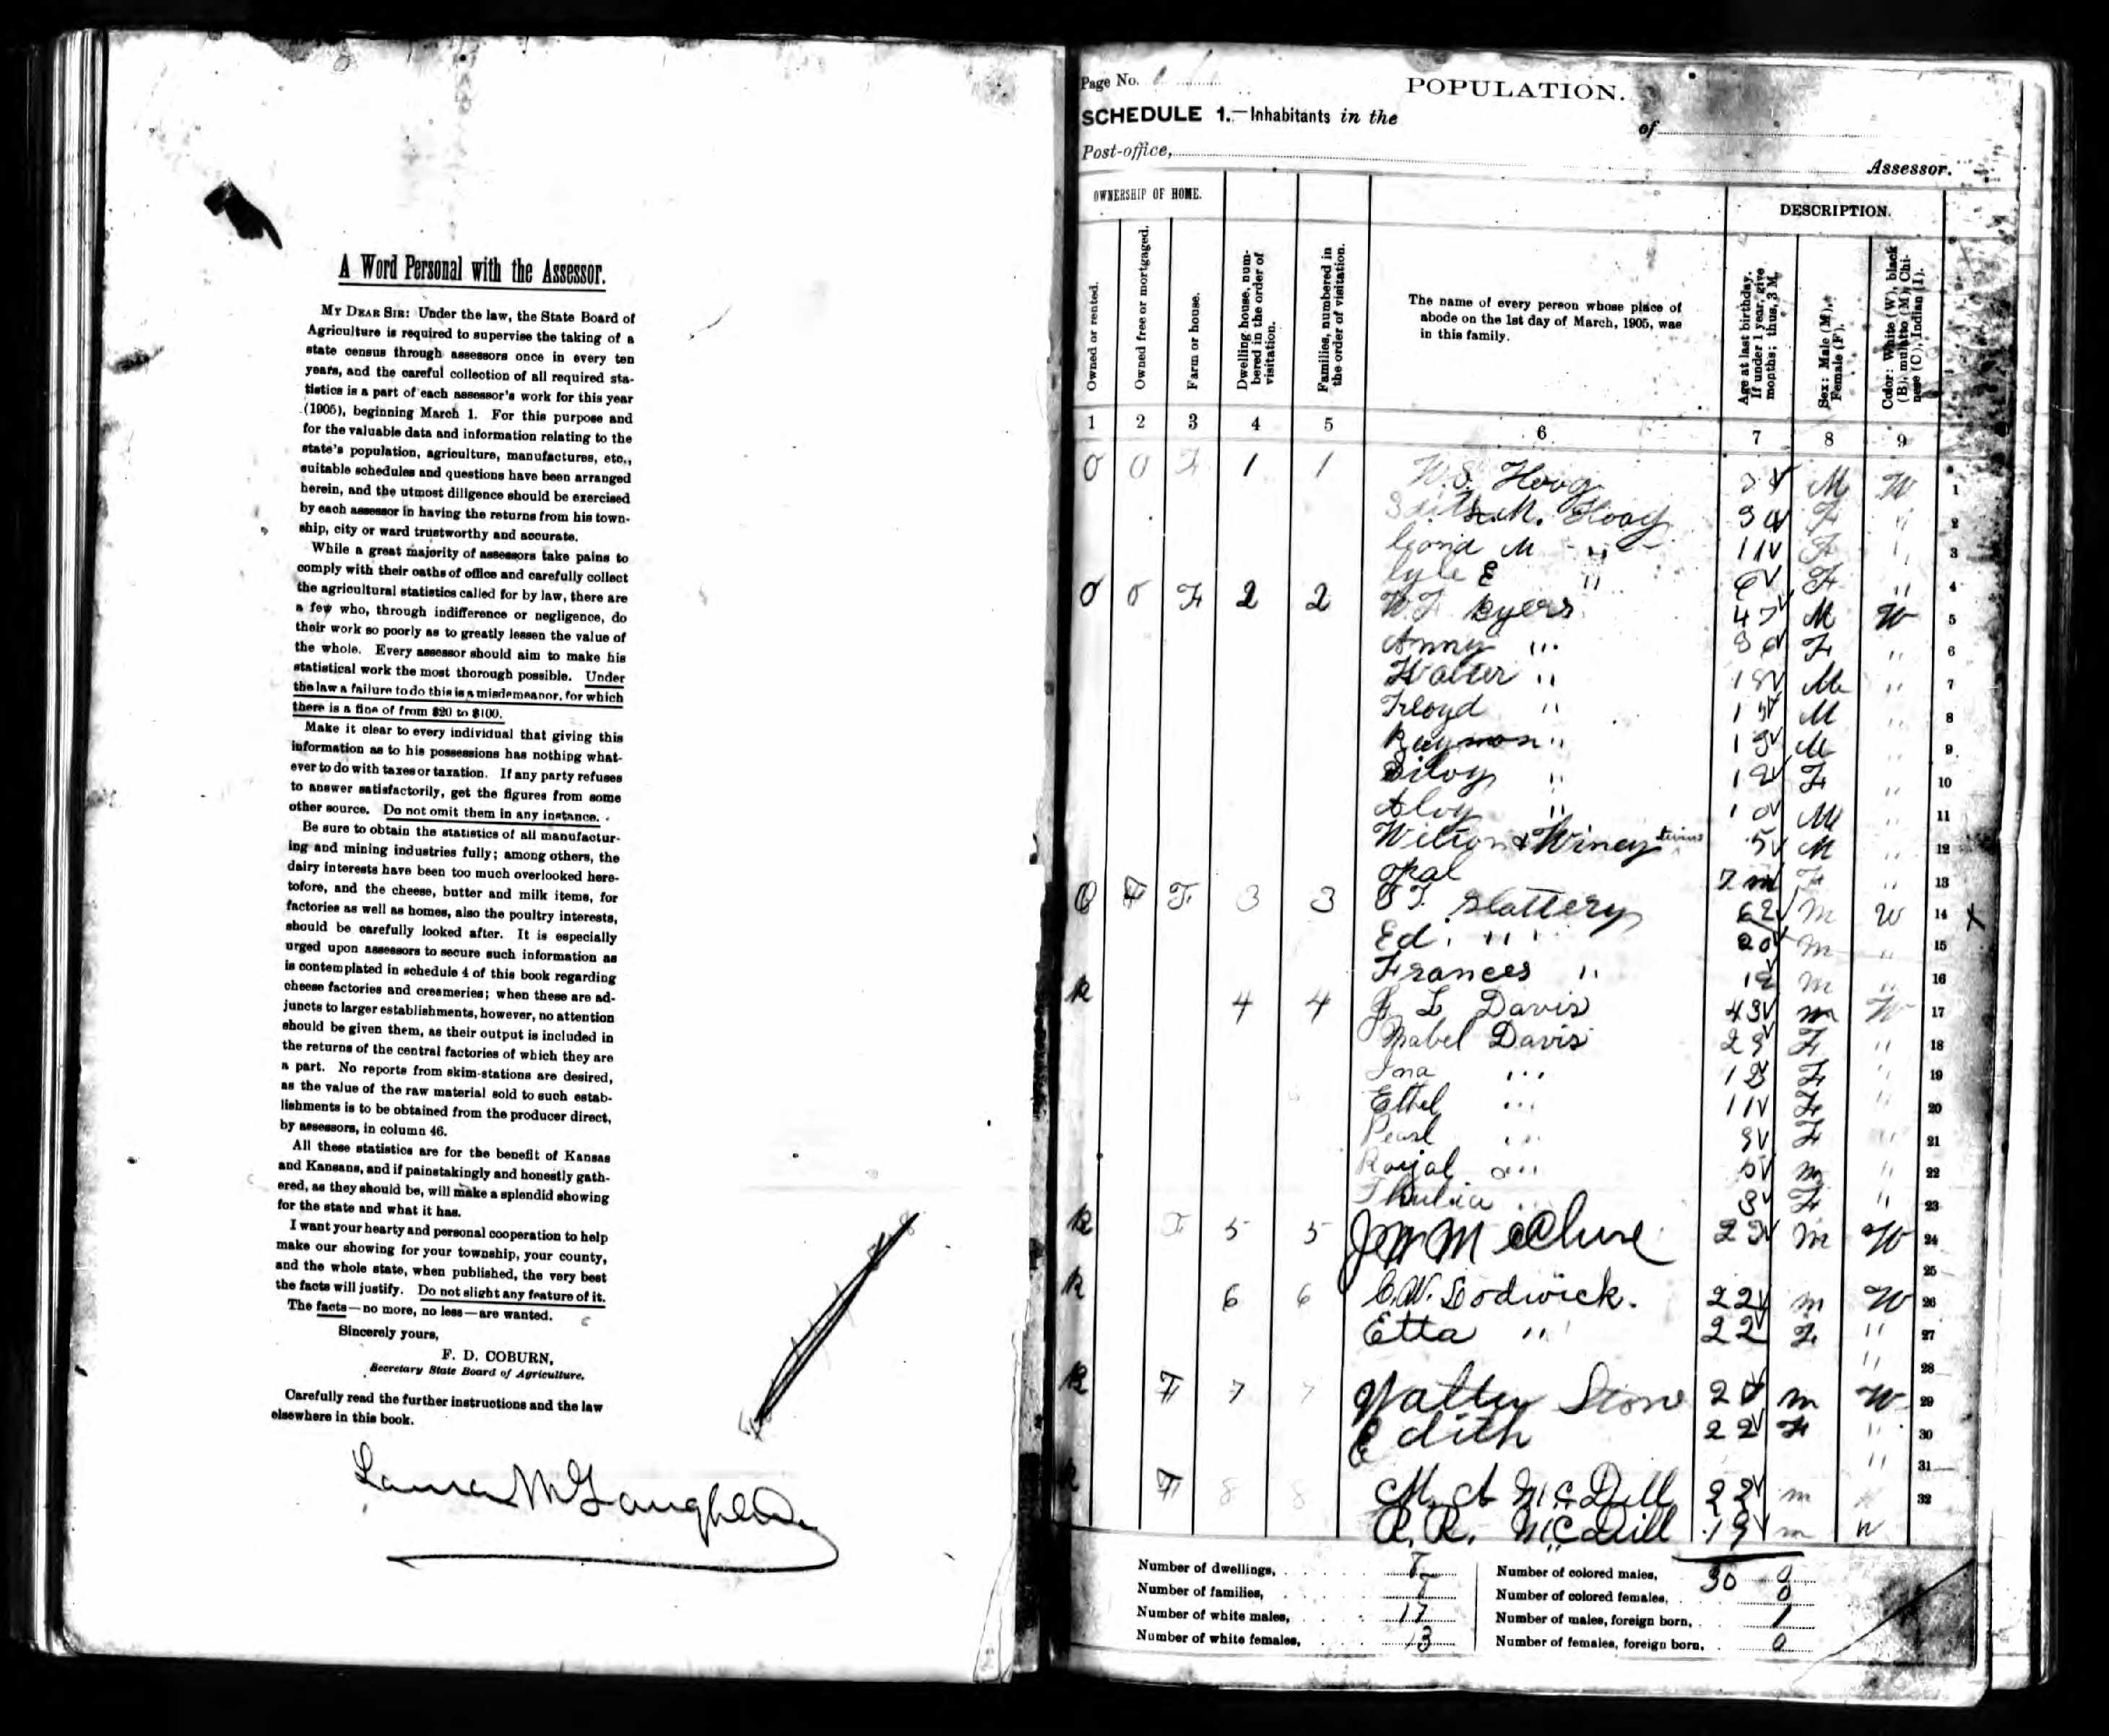 A Word Personal with the Assessor.
MY DEAR SIR: Under the law, the State Board of
Agriculture is required to supervise the taking of a
state census through assessors once in every ten
years, and the careful collection of all required sta-
tistics is a part of each assessor's work for this year
(1905), beginning March 1. For this purpose and
for the valuable data and information relating to the
state's population, agriculture, manufactures, etc.,
suitable schedules and questions have been arranged
herein, and the utmost diligence should be exercised
by each assessor in having the returns from his town-
ship, city or ward trustworthy and accurate.
While a great majority of assessors take pains to
comply with their oaths of office and carefully collect
the agricultural statistics called for by law, there are
a few who, through indifference or negligence, do
their work so poorly as to greatly lessen the value of
the whole. Every assessor should aim to make his
statistical work the most thorough possible. Under
the law a failure to do this is a misdemeanor, for which
there is a fine of from $20 to $100.
Make it clear to every individual that giving this
information as to his possessions has nothing what-
ever to do with taxes or taxation. If any party refuses
to answer satisfactorily, get the figures from some
other source. Do not omit them in any instance.
Be sure to obtain the statistics of all manufactur-
ing and mining industries fully; among others, the
dairy interests have been too much overlooked here-
tofore, and the cheese, butter and milk items, for
factories as well as homes, also the poultry interests,
should be carefully looked after. It is especially
urged upon assessors to secure such information as
is contemplated in schedule 4 of this book regarding
cheese factories and creameries; when these are ad-
juncts to larger establishments, however, no attention
should be given them, as their output is included in
the returns of the central factories of which they are
a part. No reports from skim-stations are desired,
as the value of the raw material sold to such estab-
lishments is to be obtained from the producer direct,
by assessors, in column 46.
All these statistics are for the benefit of Kansas
and Kansans, and if painstakingly and honestly gath-
ered, as they should be, will make a splendid showing
for the state and what it has.
I want your hearty and personal cooperation to help
make our showing for your township, your county,
and the whole state, when published, the very best
the facts will justify. Do not slight any feature of it.
The facts—no more, no less—are wanted.
Sincerely yours,
F. D. COBURN,
Secretary State Board of Agriculture.
Carefully read the further instructions and the law
elsewhere in this book.
Page No.
POPULATION.
SCHEDULE 1.—Inhabitants in the
of
Post-office,
Assessor.
OWNERSHIP OF HOME.
DESCRIPTION.
Owned or rented.
Owned free or mortgaged.
Farm or house.
Dwelling house, num-
bered in the order of
visitation.
Families, numbered in
the order of visitation.
The name of every person whose place of
abode on the 1st day of March, 1905, was
in this family.
Age at last birthday.
If under 1 year, give
months; thus, 3 M.
Sex: Male (M),
Female (F).
Color: White (W), black
(B), mulatto (M), Chi-
nese (C), Indian (I).
1 2 3 4 5 6 7 8 9
O O F 1 1 W.S. Hoag M W 1
M. Hoag F " 2
M " 11 F " 3
Lyle E " 6 F " 4
O O F 2 2 W F Byers M W 5
Anny " F " 6
Walter " M " 7
Floyd " M " 8
Raymon " M " 9
" 12 F " 10
Aloy " 10 M " 11
Wilton & Winey twins 5 M " 12
Opal 7 m F " 13
O F F 3 3 Slattery 62 M W 14 X
Ed. " 20 M " 15
Frances " M " 16
R 4 4 L Davis 43 m W 17
Mabel Davis F " 18
Ina " F " 19
Ethel " 11 F " 20
Pearl " F " 21
Royal " m " 22
" F " 23
R F 5 5 McClure m W 24
25
R 6 6 C.W. Lodwick. 22 m W 26
Etta " 22 F " 27
" 28
R F 7 7 Walter Stone m W 29
Edith 22 F " 30
" 31
R F 8 8 M. A McDill 22 m 32
R. R. McDill 19 m W
30
Number of dwellings, 8
Number of families, 8
Number of white males, 17
Number of white females, 13
Number of colored males, 0
Number of colored females, 0
Number of males, foreign born, 1
Number of females, foreign born, 0